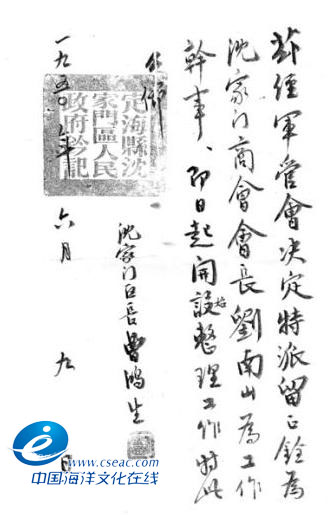 茲經軍管會决定特派留銓為
沈家门商會會長劉南山為工作
幹事、即日起開設始整理工作特此
公佈
沈家门区長曹鴻生
一九五〇年六月九日
定海縣沈
家門區人民
政府鈐記
www.cseac.com
中国海洋文化在线